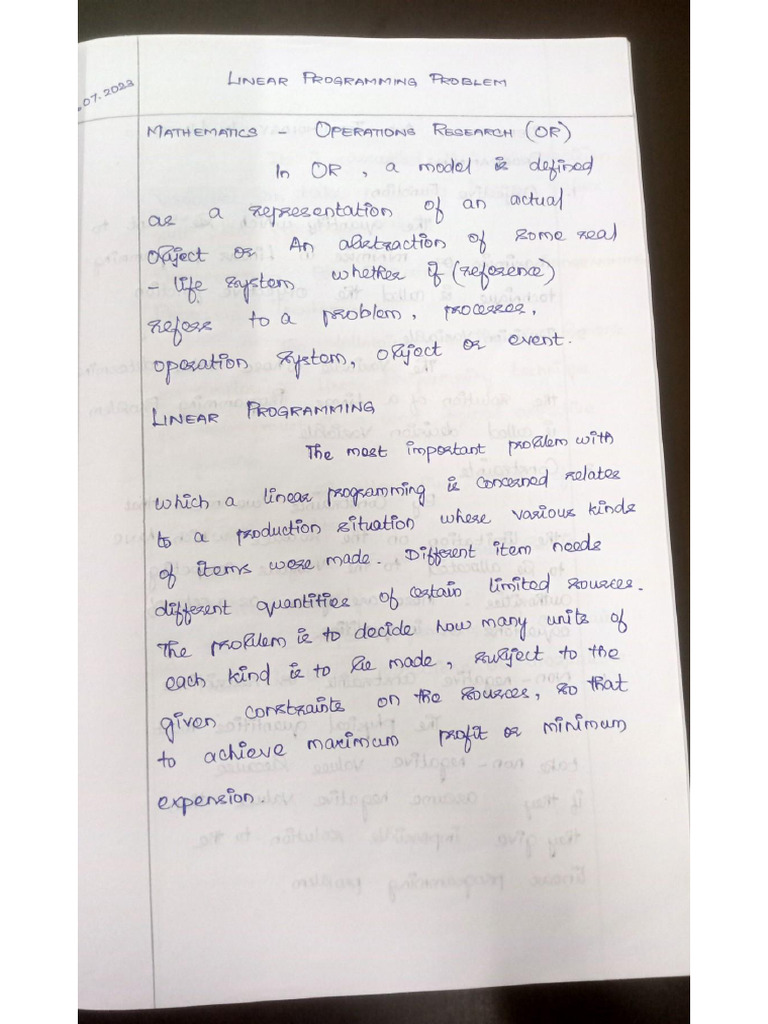 LINEAR PROGRAMMING PROBLEM
.07.2023
MATHEMATICS - OPERATIONS RESEARCH (OR)
In OR, a model is defined
as a representation of an actual
object or An abstraction of some real
- life system whether if (reference)
refers to a problem, processes,
operation system, object or event.
LINEAR PROGRAMMING
The most important problem with
which a linear programming is concerned relates
to a production situation where various kinds
of items were made. Different item needs
different quantities of certain limited sources.
The problem is to decide how many units of
each kind is to be made, subject to the
given constraints on the sources, so that
to achieve maximum profit or minimum
expension.